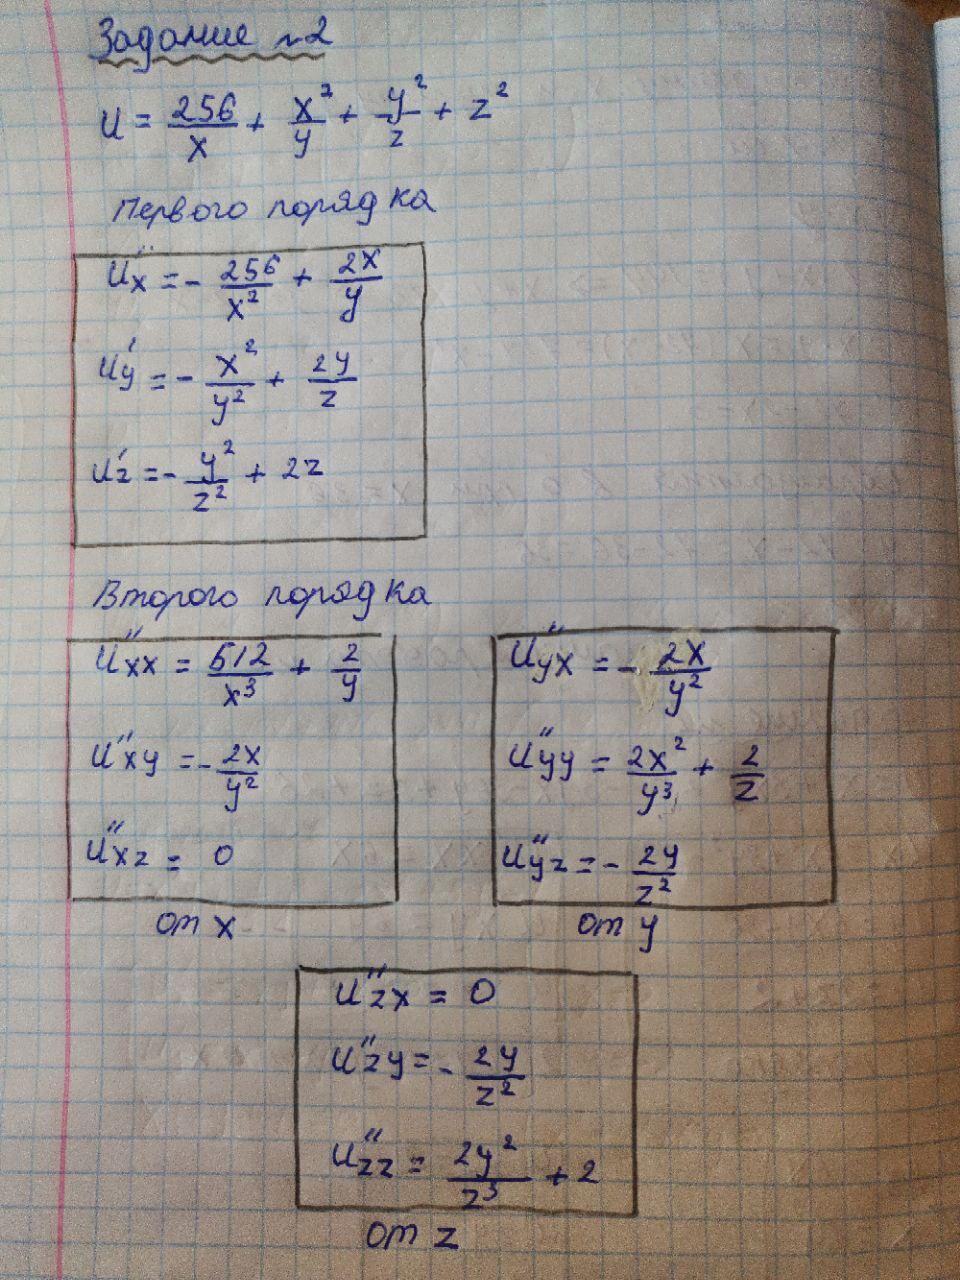 Задание №2
U = 256/x + x²/y + y²/z + z²
Первого порядка
U''x = - 256/x² + 2x/y
U'y = - x²/y² + 2y/z
U'z = - y²/z² + 2z
Второго порядка
U''xx = 512/x³ + 2/y
U''xy = - 2x/y²
U''xz = 0
от x
U''yx = - 2x/y²
U''yy = 2x²/y³ + 2/z
U''yz = - 2y/z²
от y
U''zx = 0
U''zy = - 2y/z²
U''zz = 2y²/z³ + 2
от z